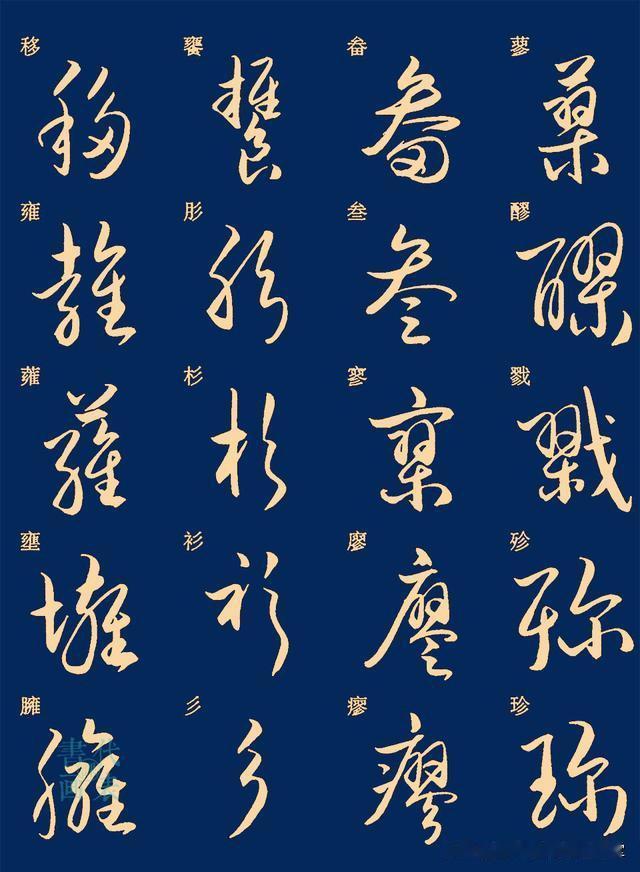 移 饔 畚 蓼
移 饔 畚 蓼
雍 肜 叁 醪
雍 肜 叁 醪
蕹 杉 寥 戮
蕹 杉 寥 戮
壅 衫 廖 殄
壅 衫 廖 殄
臃 彡 瘳 珍
臃 彡 瘳 珍
書画